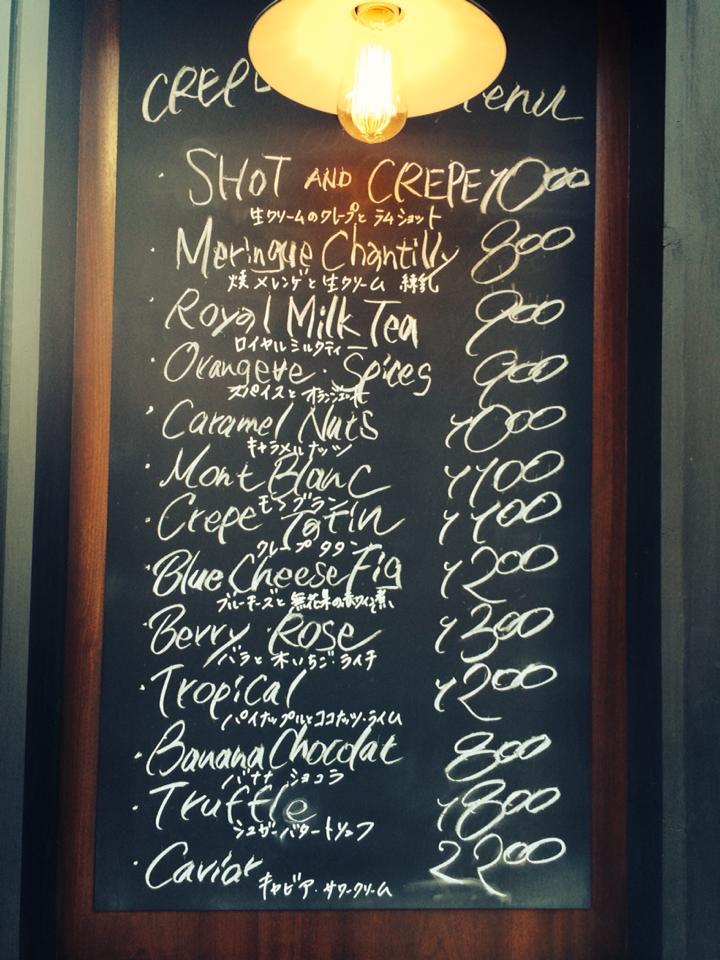 CREPE Menu
· SHOT AND CREPE 1000
生クリームのクレープと ラムショット
· Meringue Chantilly 800
焼メレンゲと生クリーム 練乳
· Royal Milk Tea 900
ロイヤルミルクティー
· Orangeve · Spices 900
スパイスと オランジェ
· Caramel Nuts 1000
キャラメルナッツ
· Mont Blanc 1100
モンブラン
· Crepe Tatin 1100
クレープタタン
· Blue Cheese Fig 1200
ブルーチーズと 無花果の赤ワイン煮
· Berry Rose 1300
バラと木いちご・ライチ
· Tropical 1200
パイナップルとココナッツ・ライム
· Banana Chocolat 800
バナナ ショコラ
· Truffle 1800
シュガーバタートリュフ
· Caviar 2200
キャビア・サワークリーム